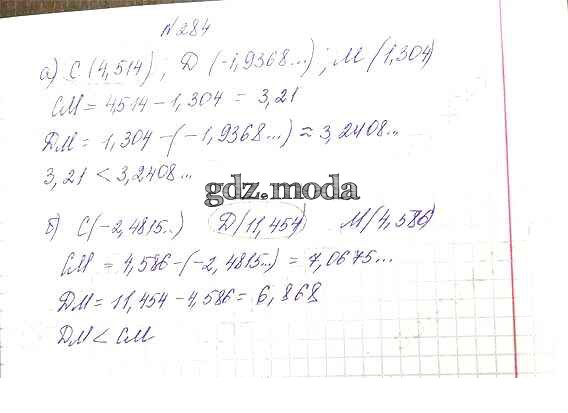 №284
а) С (4,514) ; Д (-1,9368...) ; М (1,304)
СМ = 4,514 - 1,304 = 3,21
ДМ = 1,304 - (-1,9368...) ≈ 3,2408...
3,21 < 3,2408...
gdz.moda
б) С (-2,4815..) Д (11,454) М (4,586)
СМ = 4,586 - (-2,4815..) = 7,0675...
ДМ = 11,454 - 4,586 = 6,868
ДМ < СМ